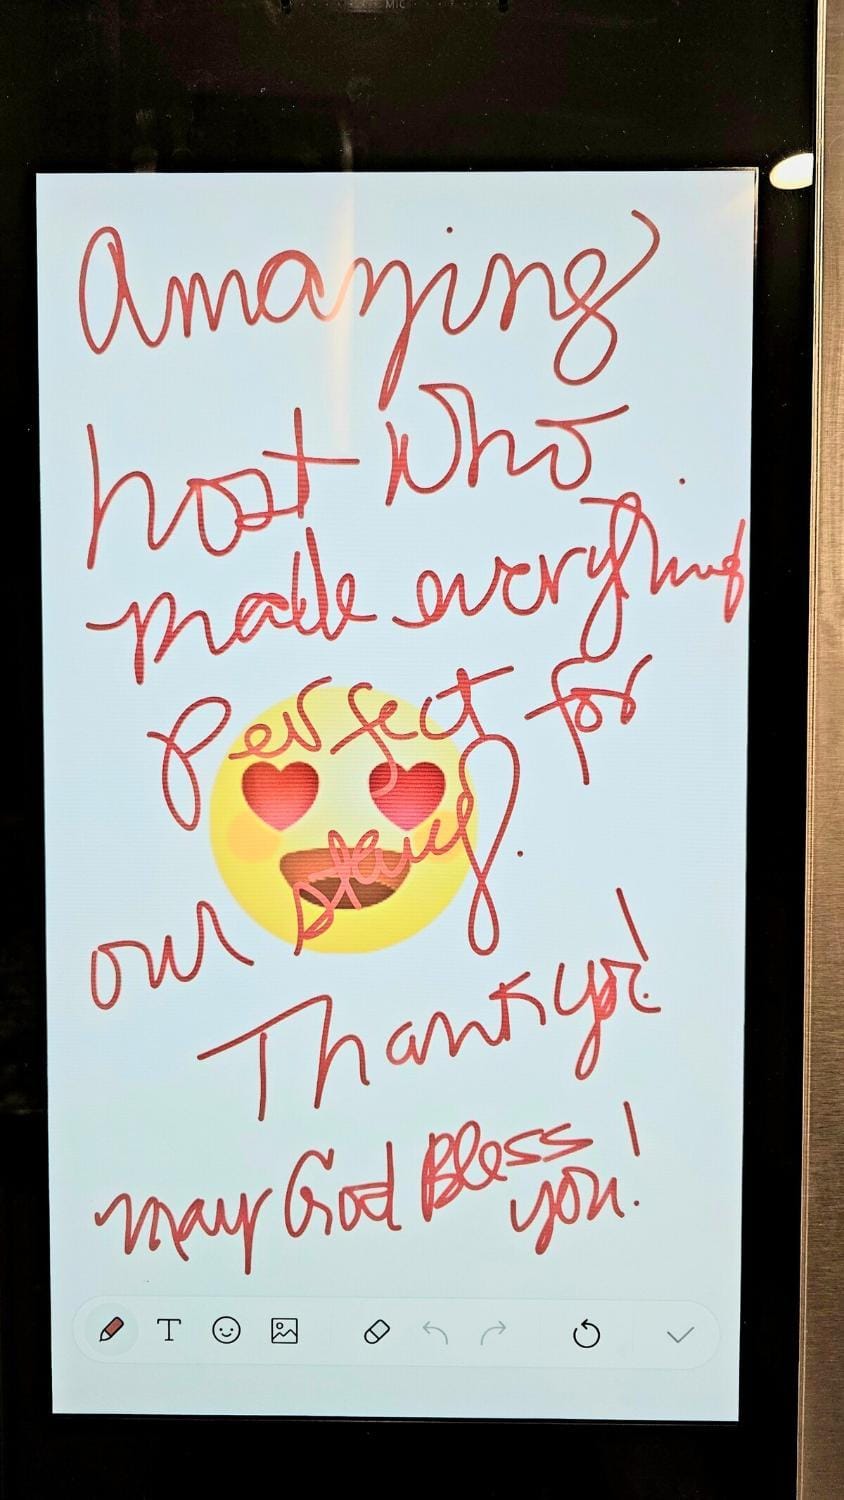 MIC
Amazing
host who
made everything
Perfect for
our stay.
Thank you!
may God Bless
you!
T